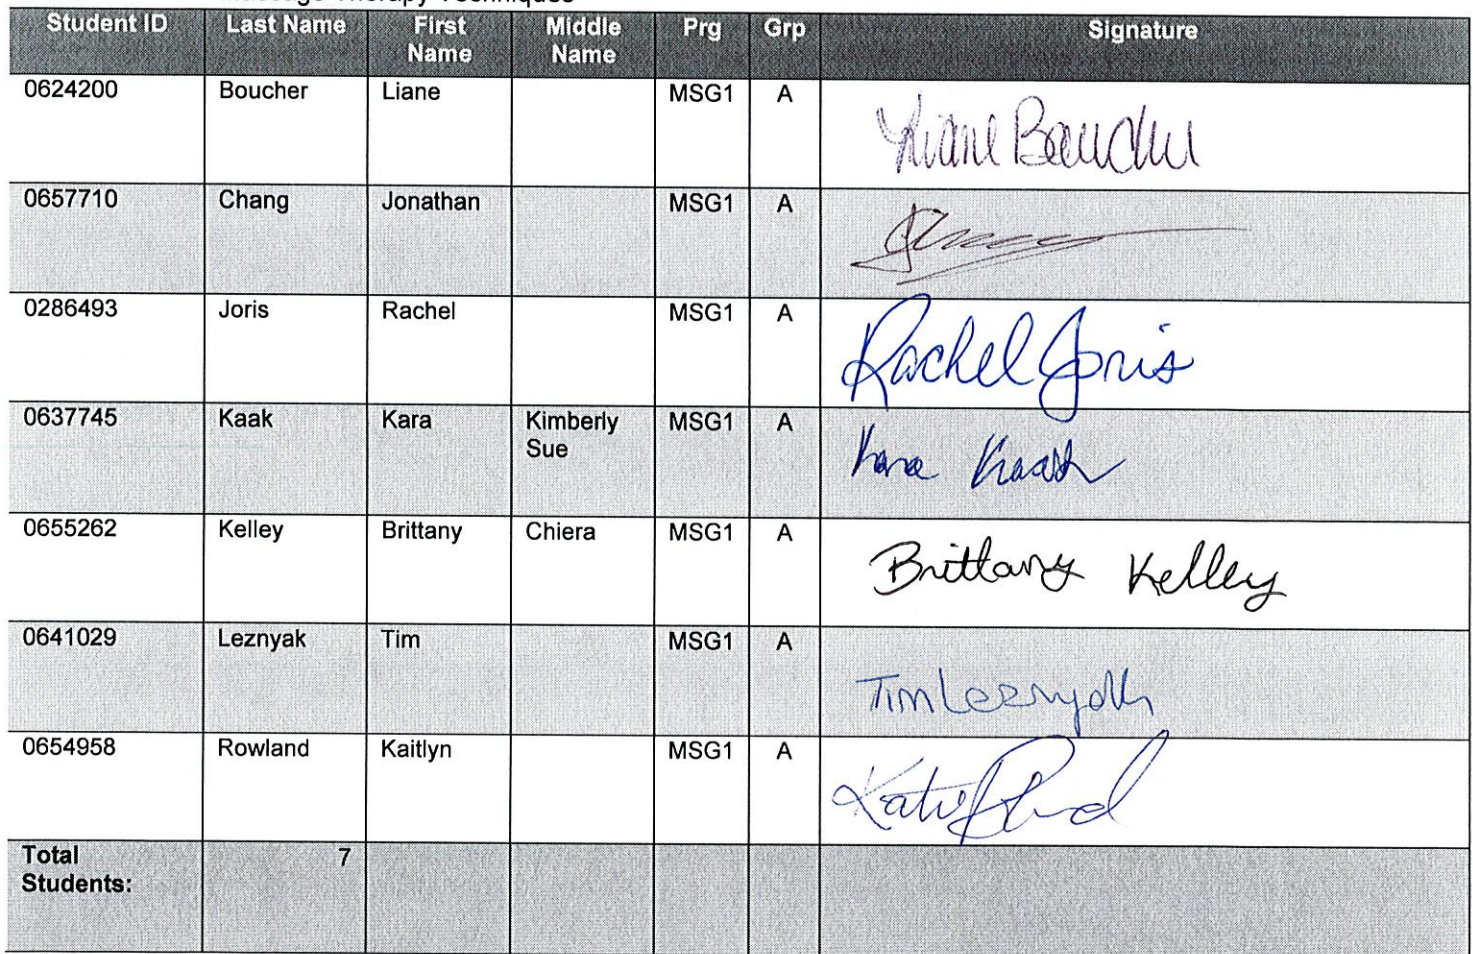 Therapy Techniques
Student ID Last Name First Name Middle Name Prg Grp Signature
0624200 Boucher Liane MSG1 A Liane Boucher
0657710 Chang Jonathan MSG1 A
0286493 Joris Rachel MSG1 A Rachel Joris
0637745 Kaak Kara Kimberly Sue MSG1 A Kara Kaak
0655262 Kelley Brittany Chiera MSG1 A Brittany Kelley
0641029 Leznyak Tim MSG1 A Tim Leznyak
0654958 Rowland Kaitlyn MSG1 A
Total Students: 7